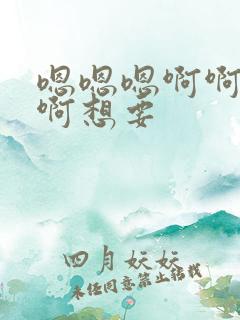 嗯嗯嗯啊啊
啊想要
四月妏妏
未经同意禁止转载